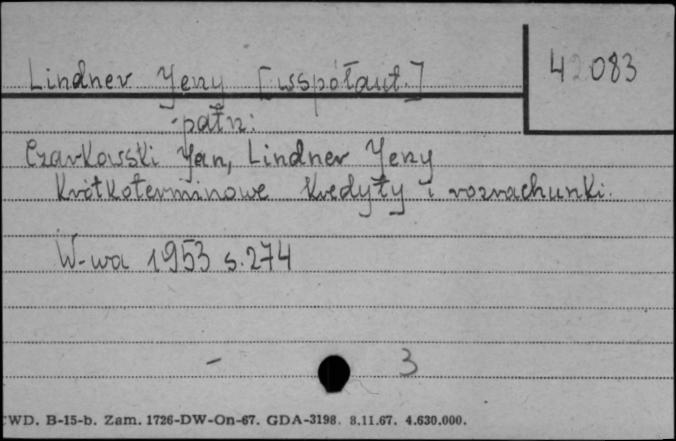 Lindner Jerzy [współaut.]
42083
patrz:
Czarkowski Jan, Lindner Jerzy
Krótkoterminowe kredyty i rozrachunki.
W-wa 1953 s. 274
- 3
WD. B-15-b. Zam. 1726-DW-On-67. GDA-3198. 8.11.67. 4.630.000.